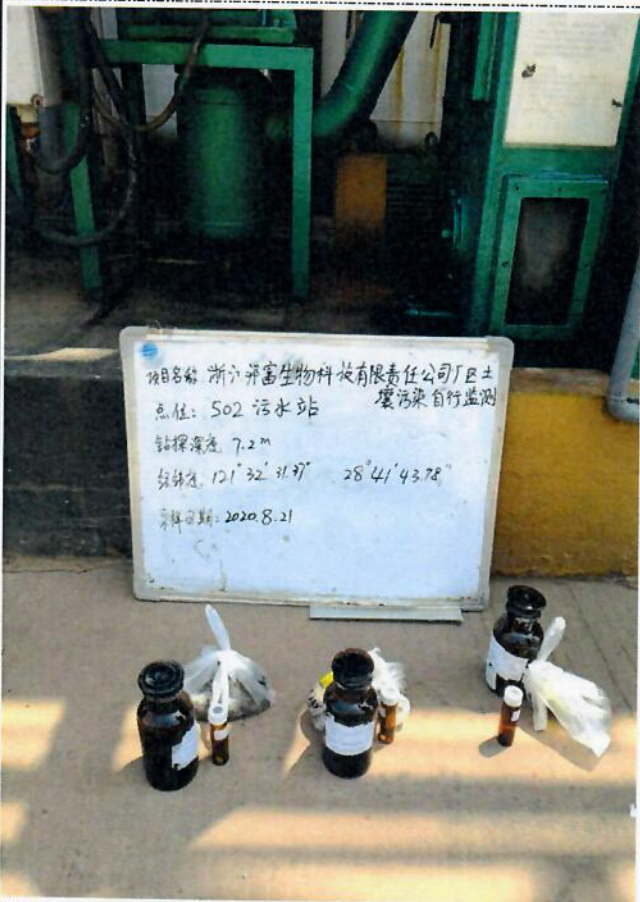 项目名称 浙江升富生物科技有限责任公司厂区土
壤污染自行监测
点位: S02 污水站
钻探深度 7.2m
经纬度 121°32′31.37″ 28°41′43.78″
采样日期: 2020.8.21